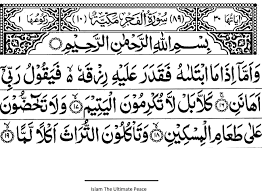 اٰیاتها ٣٠ (٨٩) سُوْرَةُ الْفَجْرِ مَكِّيَّةٌ (١٠) رکوعها ١
بِسْمِ اللّٰهِ الرَّحْمٰنِ الرَّحِيْمِ
وَاَمَّاۤ اِذَا مَا ابْتَلٰىهُ فَقَدَرَ عَلَيْهِ رِزْقَهٗ ۙ فَيَقُوْلُ رَبِّیْۤ
اَهَانَنِ ۚ﴿١٦﴾ كَلَّا بَلْ لَّا تُكْرِمُوْنَ الْيَتِيْمَ ۙ﴿١٧﴾ وَلَا تَحٰٓضُّوْنَ
عَلٰى طَعَامِ الْمِسْكِيْنِ ۙ﴿١٨﴾ وَتَاْكُلُوْنَ التُّرَاثَ اَكْلًا لَّمًّا ۙ﴿١٩﴾
Islam The Ultimate Peace